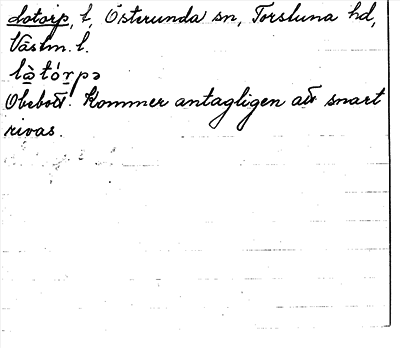 Lotorp, t, Österunda sn, Torstuna hd,
Västm. l.
là tórpə
Obebott. Kommer antagligen att snart
rivas.